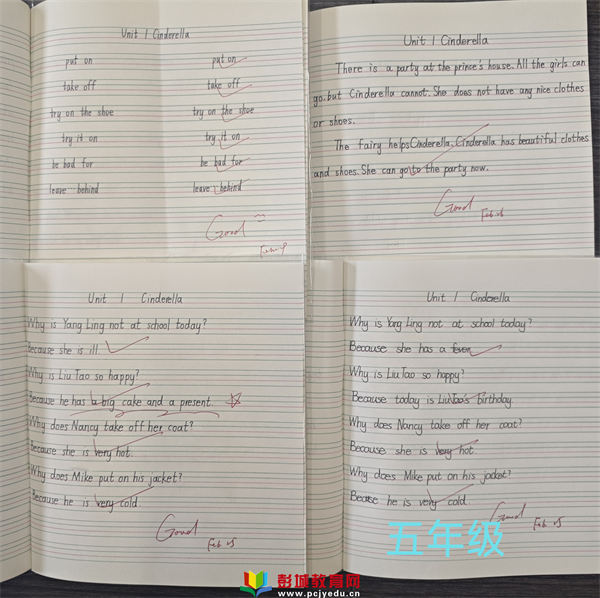 Unit 1 Cinderella
put on put on
take off take off
try on the shoe try on the shoe
try it on try it on
be bad for be bad for
leave behind leave behind
Good
Unit 1 Cinderella
There is a party at the prince's house. All the girls can
go. but Cinderella cannot. She does not have any nice clothes
or shoes.
The fairy helps Cinderella. Cinderella has beautiful clothes
and shoes. She can go to the party now.
Good
Feb 25
Unit 1 Cinderella
Why is Yang Ling not at school today?
Because she is ill.
Why is Liu Tao so happy?
Because he has a big cake and a present.
Why does Nancy take off her coat?
Because she is very hot.
Why does Mike put on his jacket?
Because he is very cold.
Good
Feb 25
Unit 1 Cinderella
Why is Yang Ling not at school today?
Because she has a fever.
Why is Liu Tao so happy?
Because today is Liu Tao's birthday.
Why does Nancy take off her coat?
Because she is very hot.
Why does Mike put on his jacket?
Because he is very cold.
Good
Feb 25
五年级
彭城教育网
www.pcjyedu.cn